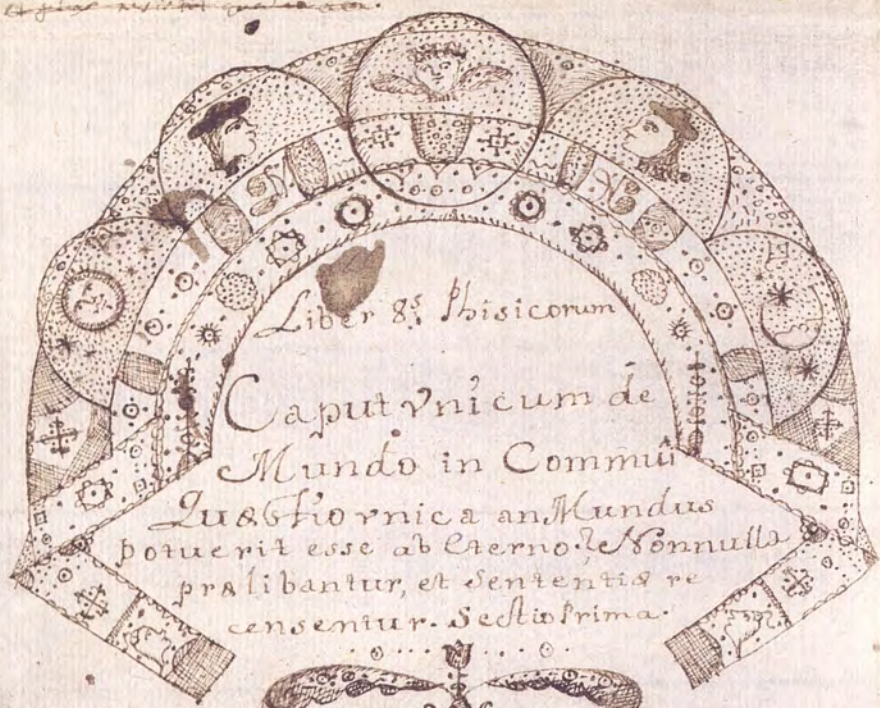 Liber 8.s Phisicorum
Caput vnicum de
Mundo in Commũi
Quæstio vnica an Mundus
potuerit esse ab Eterno? Nonnulla
prælibantur, et Sententiæ re
censentur. Sectio Prima.